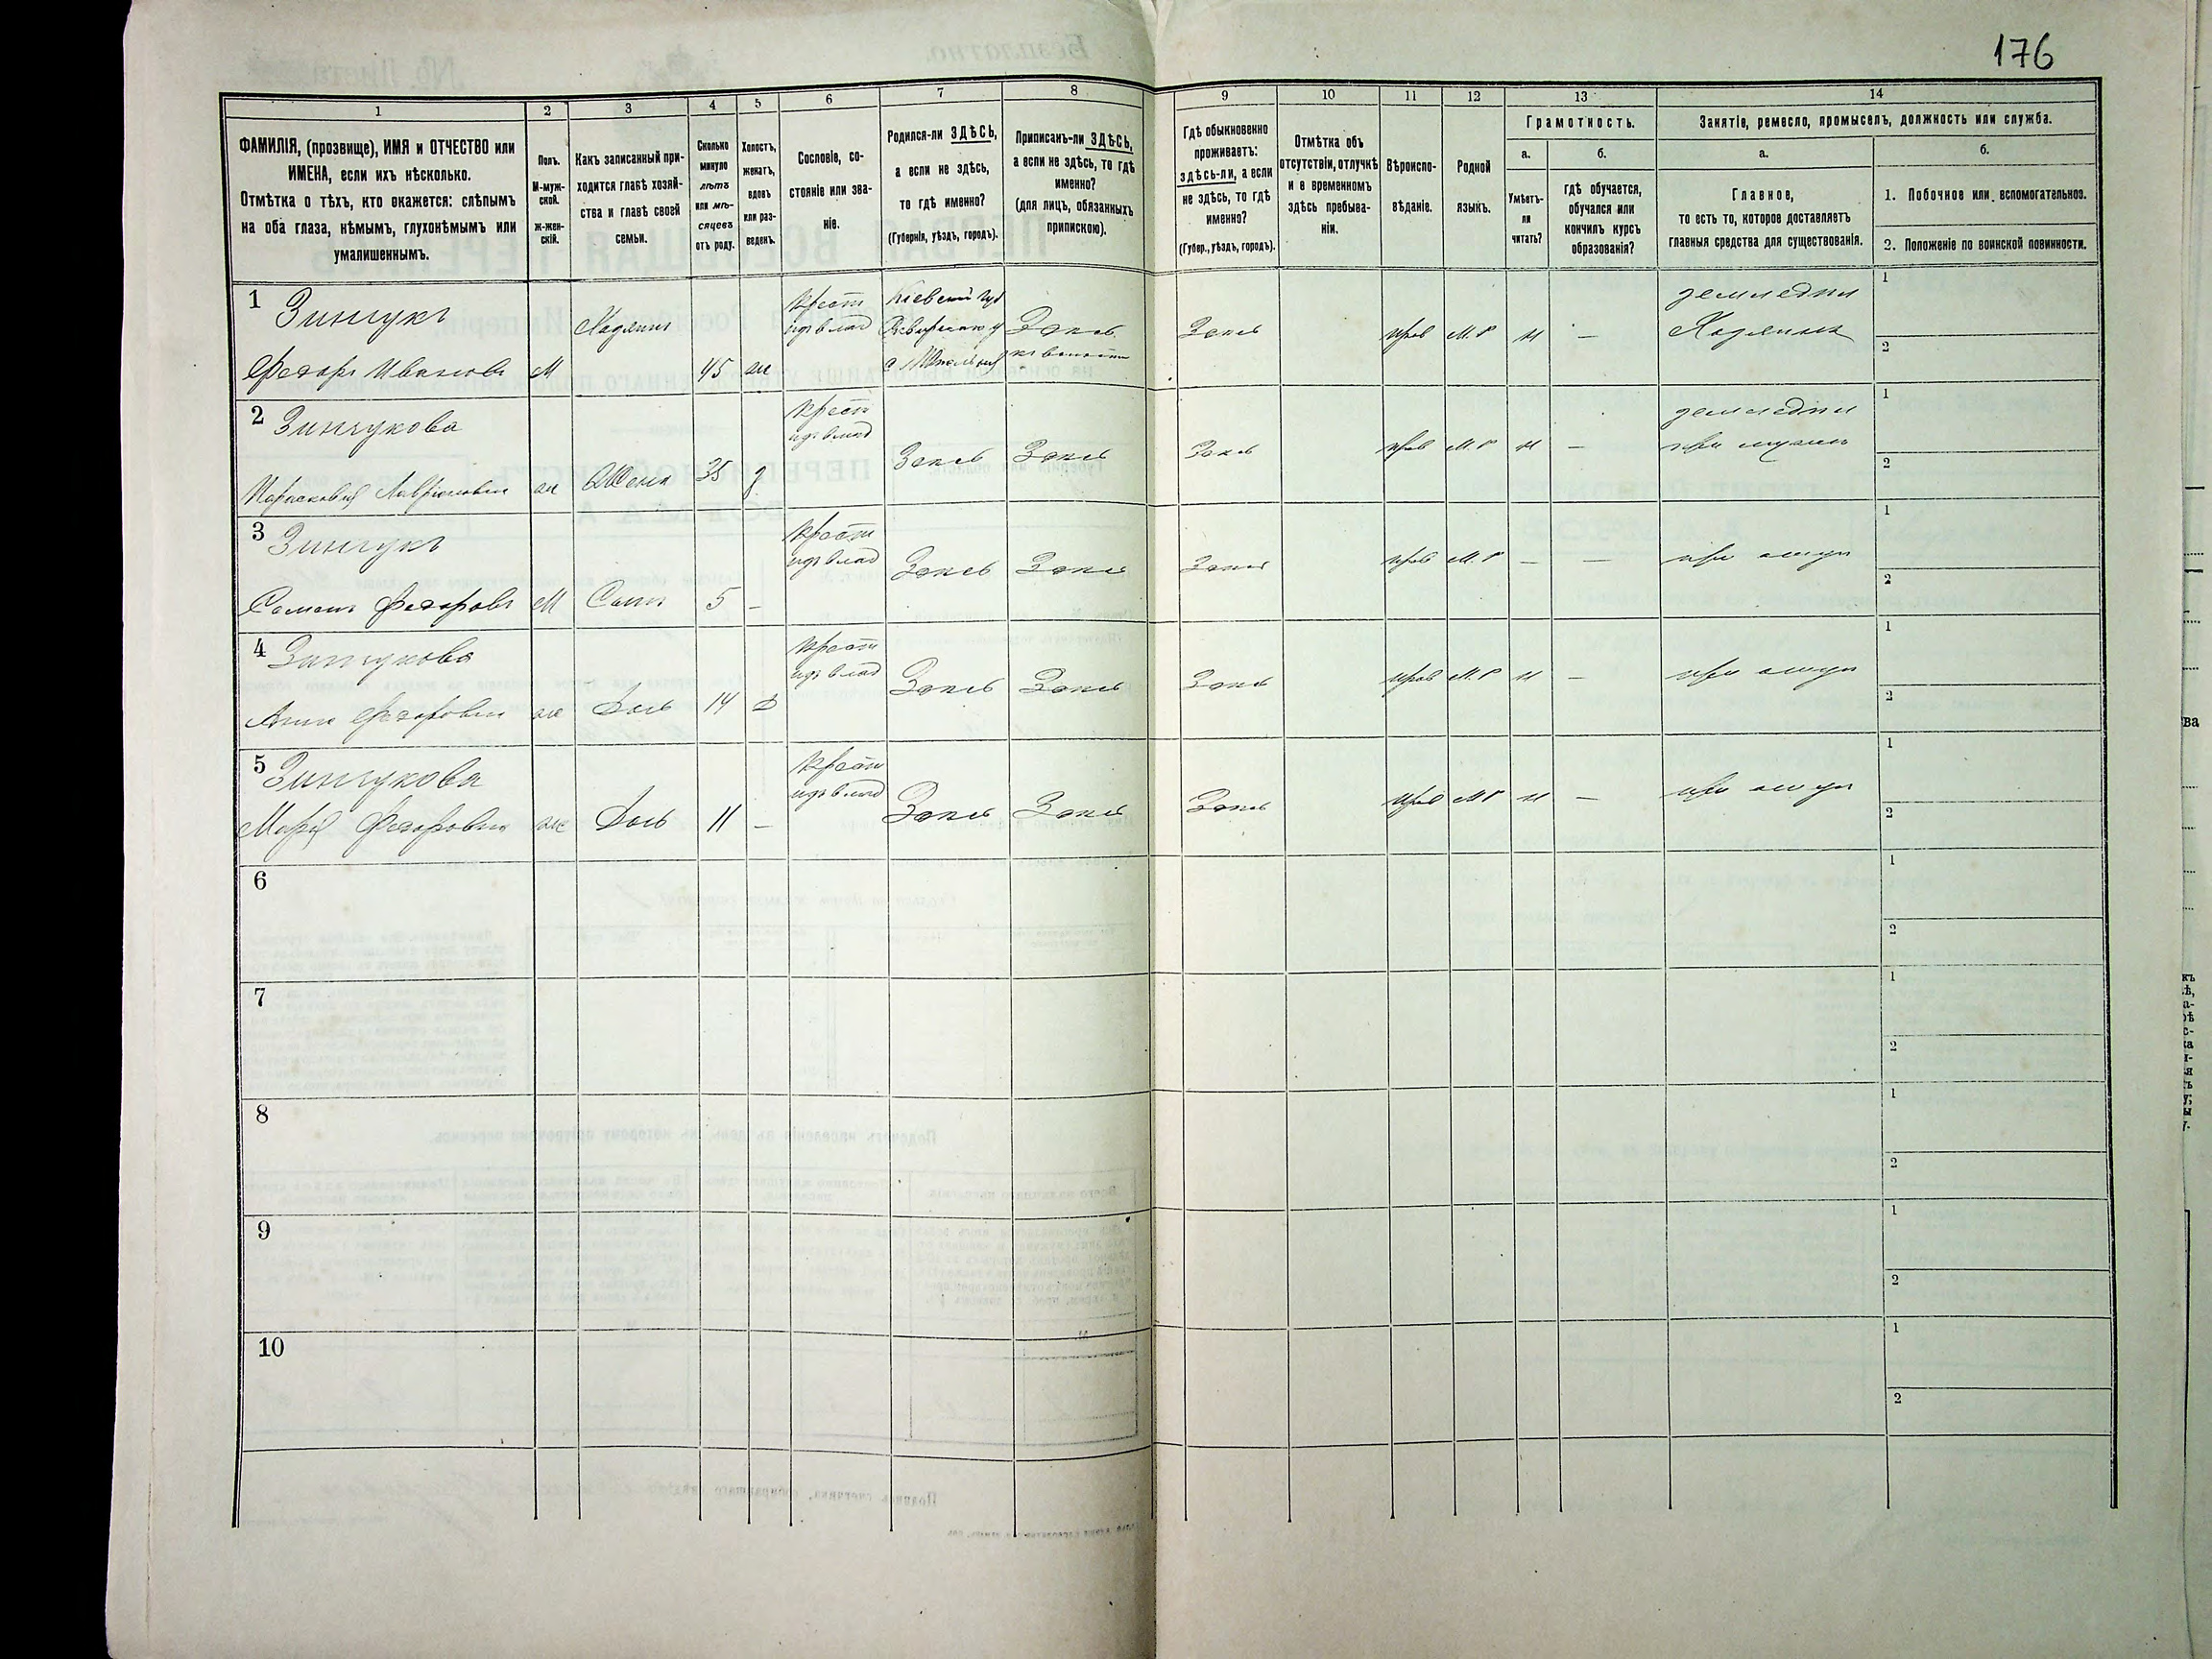 176
1 2 3 4 5 6 7 8 9 10 11 12 13 14
ФАМИЛІЯ, (прозвище), ИМЯ и ОТЧЕСТВО или
ИМЕНА, если ихъ нѣсколько.
Отмѣтка о тѣхъ, кто окажется: слѣпымъ
на оба глаза, нѣмымъ, глухонѣмымъ или
умалишеннымъ.
Полъ.
М-муж-
ской.
Ж-жен-
скій.
Какъ записанный при-
ходится главѣ хозяй-
ства и главѣ своей
семьи.
Сколько
минуло
лѣтъ
или мѣ-
сяцевъ
отъ роду.
Холостъ,
женатъ,
вдовъ
или раз-
веденъ.
Сословіе, со-
стояніе или зва-
ніе.
Родился-ли ЗДѢСЬ,
а если не здѣсь,
то гдѣ именно?
(Губернія, уѣздъ, городъ).
Приписанъ-ли ЗДѢСЬ,
а если не здѣсь, то гдѣ
именно?
(для лицъ, обязанныхъ
припискою).
Гдѣ обыкновенно
проживаетъ:
здѣсь-ли, а если
не здѣсь, то гдѣ
именно?
(Губер., уѣздъ, городъ).
Отмѣтка объ
отсутствіи, отлучкѣ
и о временномъ
здѣсь пребыва-
ніи.
Вѣроиспо-
вѣданіе.
Родной
языкъ.
Грамотность.
а.
Умѣетъ-
ли
читать?
б.
гдѣ обучается,
обучался или
кончилъ курсъ
образованія?
Занятіе, ремесло, промыселъ, должность или служба.
а.
Главное,
то есть то, которое доставляетъ
главныя средства для существованія.
б.
1. Побочное или вспомогательное.
2. Положеніе по воинской повинности.
1 Зинчукъ
Федоръ Ивановъ М Хозяинъ 45 ж
Крест
изъ влад
Кіевской губ
Здесь
Здесь прав М.Р н —
земледел
Хозяинъ
1
2
2 Зинчукова
ж Жена 35 з
Крест
изъ влад
Здесь Здесь Здесь прав М.Р н —
земледел
при мужи
1
2
3 Зинчукъ
Семенъ Федоровъ М Сынъ 5 —
Крест
изъ влад
Здесь Здесь Здесь прав М.Р — — при отцы
1
2
4 Зинчукова
Анна Федоровна ж Дочь 14 д
Крест
изъ влад
Здесь Здесь Здесь прав М.Р н — при отцы
1
2
5 Зинчукова
Марія Федоровна ж Дочь 11 —
Крест
изъ влад
Здесь Здесь Здесь прав М.Р н — при отцы
1
2
6
1
2
7
1
2
8
1
2
9
1
2
10
1
2